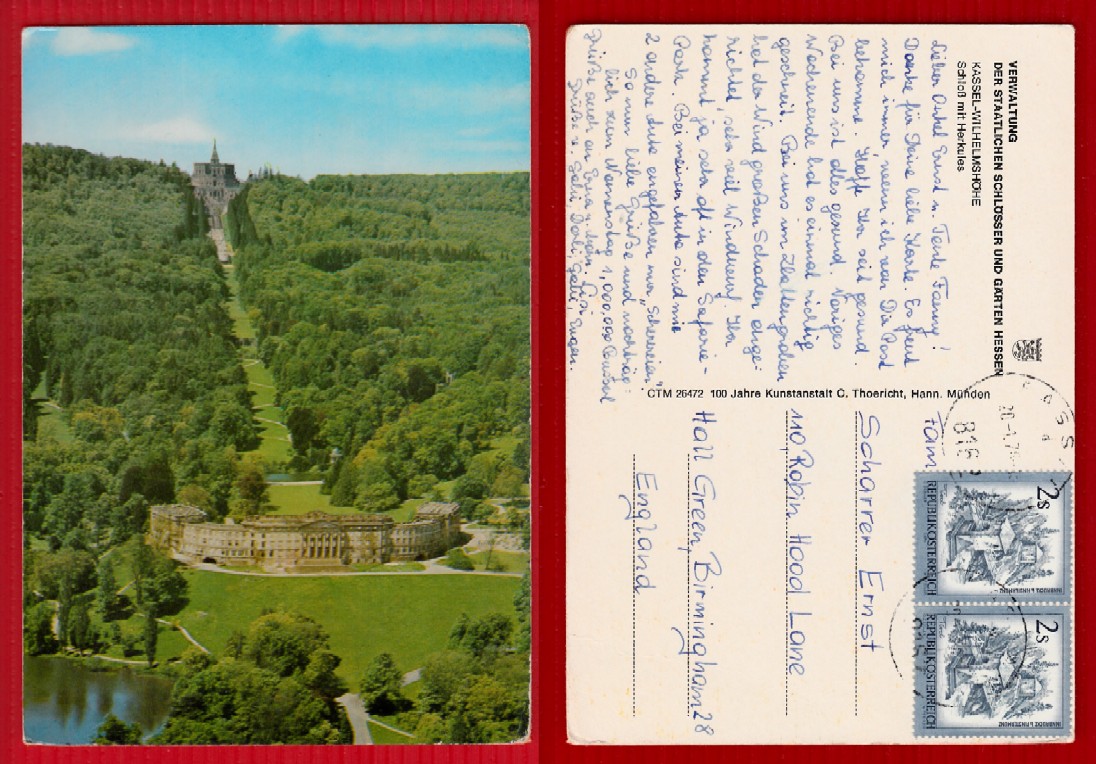 VERWALTUNG
DER STAATLICHEN SCHLÖSSER UND GÄRTEN HESSEN
KASSEL-WILHELMSHÖHE
Schloß mit Herkules
Lieber Onkel Ernst u. Tante Fanny!
Danke für Deine liebe Karte. Es freut
mich immer, wenn ich von Dir Post
bekomme. Hoffe Ihr seit gesund.
Bei uns ist alles gesund. Voriges
Wochenende hat es einmal richtig
geschneit. Bei uns im
hat der Wind großen Schaden ange-
richtet, sehr viel Windwurf. Ihr
kommt ja sehr oft in den Safarie-
Park. Bei meinen Auto sind mir
2 andere Auto angefahren nur
So nun liebe Grüße und nachträg-
lich zum Namenstag 1,000,000
Grüße auch an
Grüße v. Gabi,
CTM 26472 100 Jahre Kunstanstalt C. Thoericht, Hann. Münden
Fam
Scharrer Ernst
110, Robin Hood Lane
Hall Green, Birmingham 28
England
2s
REPUBLIK ÖSTERREICH
2s
REPUBLIK ÖSTERREICH